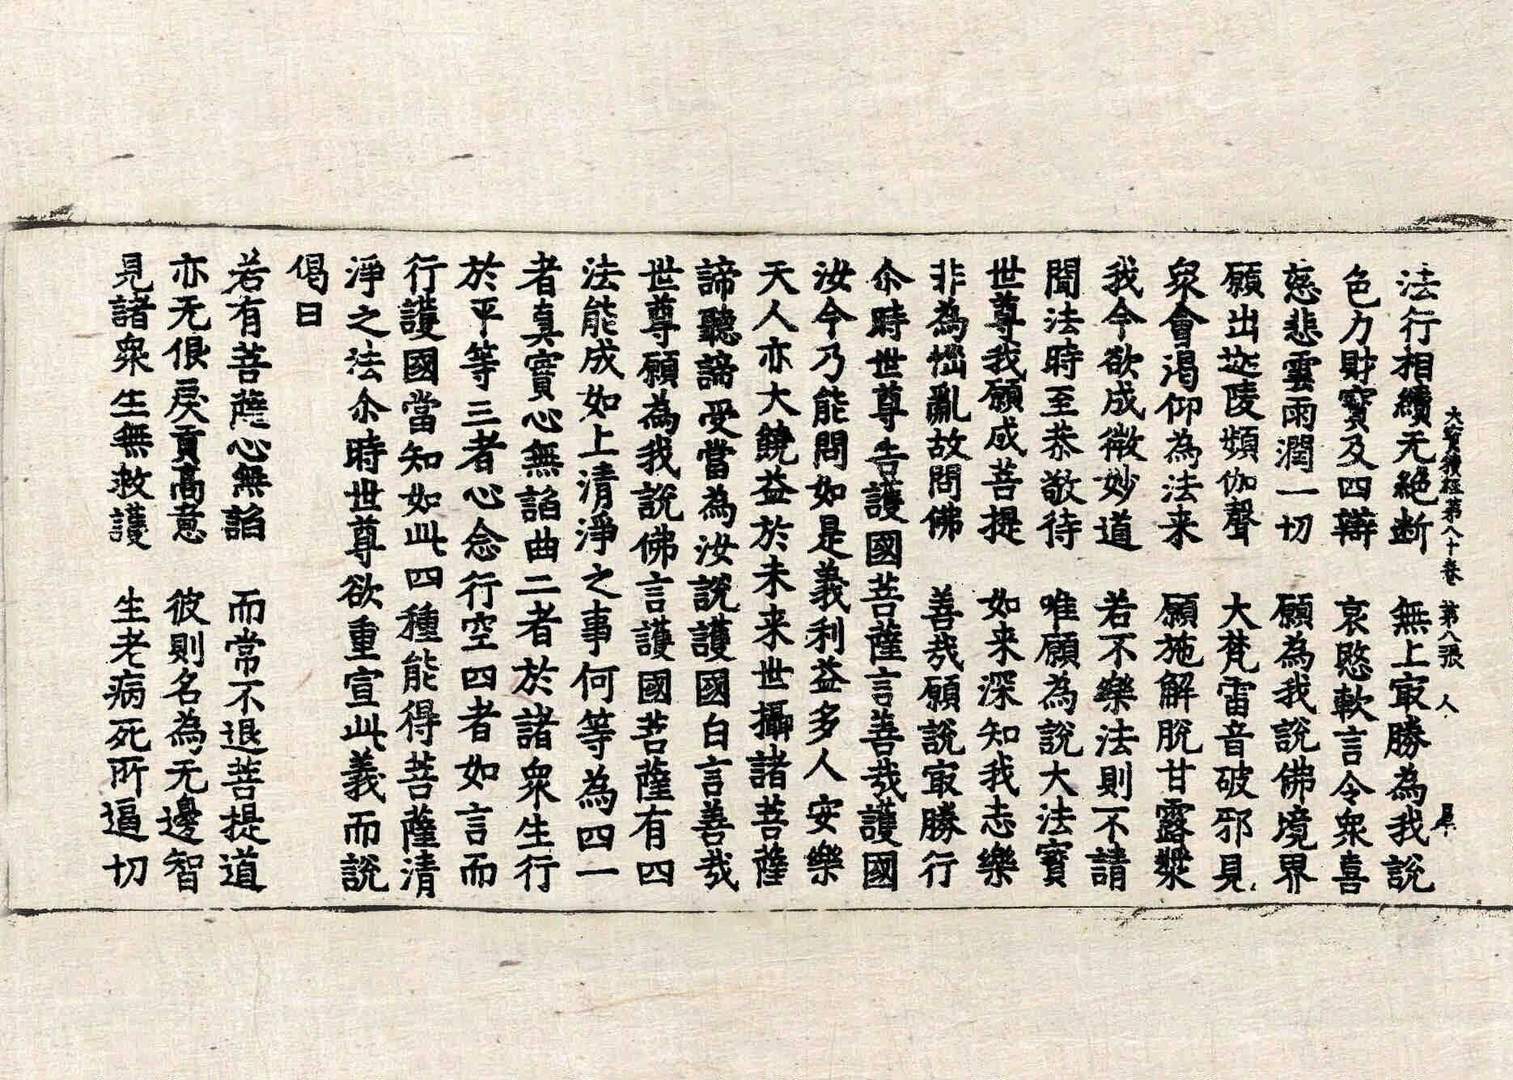 大寶積經第八十卷 第八張 人
法行相續无絕断 無上㝡勝為我說
色力財寶及四辯 哀愍軟言令衆喜
慈悲雲雨潤一切 願為我說佛境界
願出迦陵頻伽聲 大梵雷音破邪見
衆會渴仰為法来 願施解脫甘露漿
我今欲成微妙道 若不樂法則不請
聞法時至恭敬待 唯願為說大法寶
世尊我願成菩提 如来深知我志樂
非為惱亂故問佛 善哉願說㝡勝行
尒時世尊告護國菩薩言善哉護國
汝今乃能問如是義利益多人安樂
天人亦大饒益於未来世攝諸菩薩
諦聽諦受當為汝說護國白言善哉
世尊願為我說佛言護國菩薩有四
法能成如上清淨之事何等為四一
者真實心無諂曲二者於諸衆生行
於平等三者心念行空四者如言而
行護國當知如此四種能得菩薩清
淨之法尒時世尊欲重宣此義而說
偈曰
若有菩薩心無諂 而常不退菩提道
亦无佷戾貢高意 彼則名為无邊智
見諸衆生無救護 生老病死所逼切